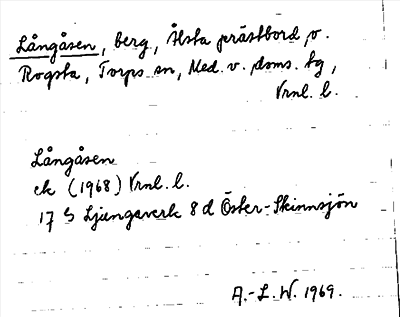 Långåsen, berg, Ålsta prästbord o.
Rogsta, Torps sn, Med. v. doms. tg,
Vrnl. l.
Långåsen
ek (1968) Vrnl. l.
17 G Ljungaverk 8 d Öster-Skinnsjön
A.-L. W. 1969.